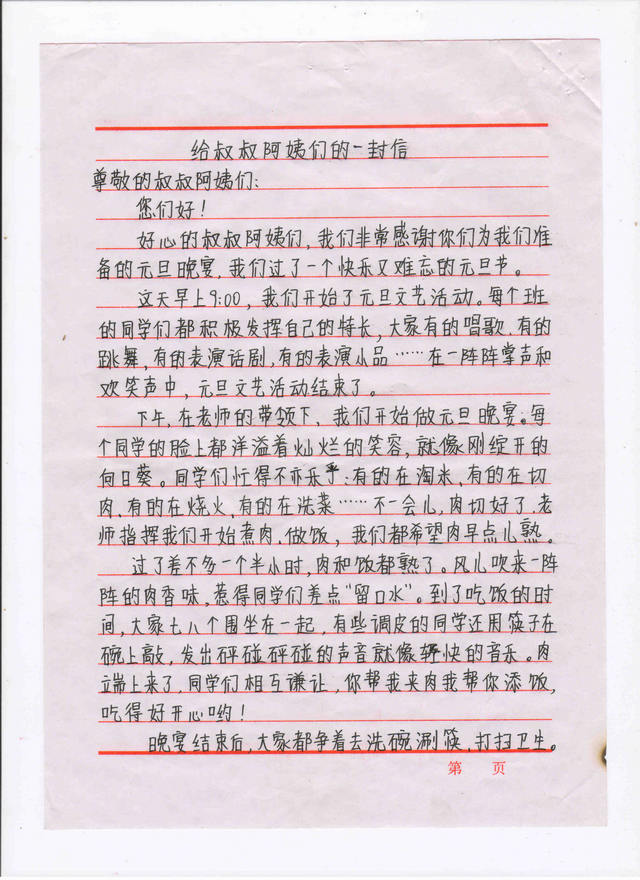 给叔叔阿姨们的一封信
尊敬的叔叔阿姨们:
您们好!
好心的叔叔阿姨们,我们非常感谢你们为我们准
备的元旦晚宴,我们过了一个快乐又难忘的元旦节。
这天早上9:00,我们开始了元旦文艺活动。每个班
的同学们都积极发挥自己的特长,大家有的唱歌,有的
跳舞,有的表演话剧,有的表演小品……在一阵阵掌声和
欢笑声中,元旦文艺活动结束了。
下午,在老师的带领下,我们开始做元旦晚宴。每
个同学的脸上都洋溢着灿烂的笑容,就像刚绽开的
向日葵。同学们忙得不亦乐乎:有的在淘米,有的在切
肉,有的在烧火,有的在洗菜……不一会儿,肉切好了,老
师指挥我们开始煮肉、做饭,我们都希望肉早点儿熟。
过了差不多一个半小时,肉和饭都熟了。风儿吹来一阵
阵的肉香味,惹得同学们差点“留口水”。到了吃饭的时
间,大家七八个围坐在一起,有些调皮的同学还用筷子在
碗上敲,发出砰碰砰碰的声音就像轻快的音乐。肉
端上来了,同学们相互谦让,你帮我夹肉我帮你添饭,
吃得好开心哟!
晚宴结束后,大家都争着去洗碗涮筷,打扫卫生。
第 页